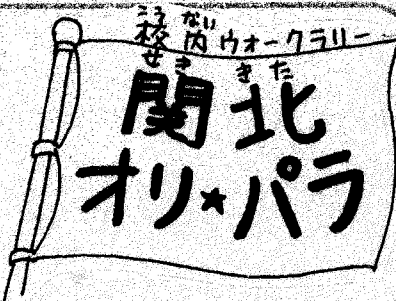 こう ない
校内ウォークラリー
せき きた
関北
オリ★パラ